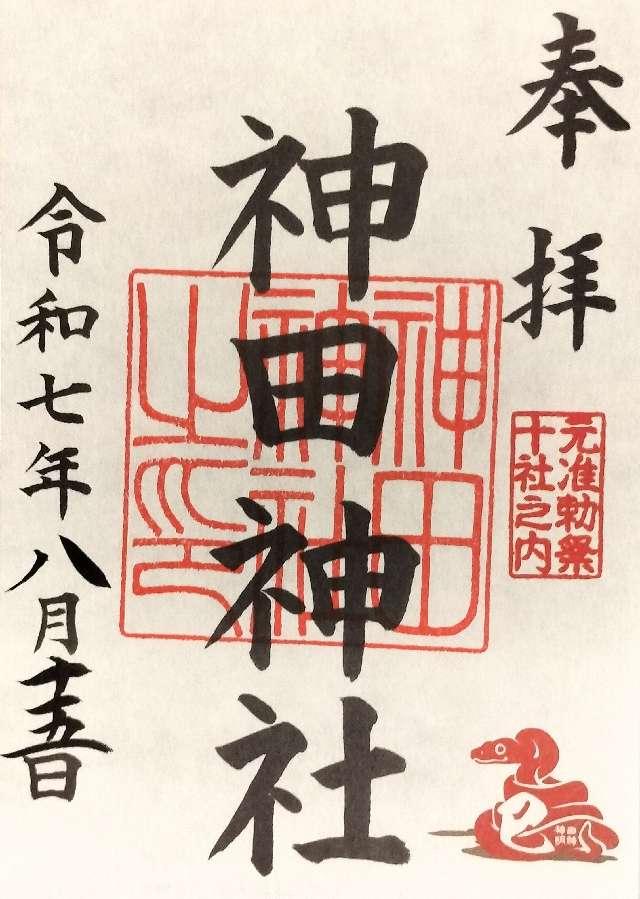 奉拝
元准勅祭
十社之内
神田神社
神田
神社
之印
巳
令和七年八月十五日